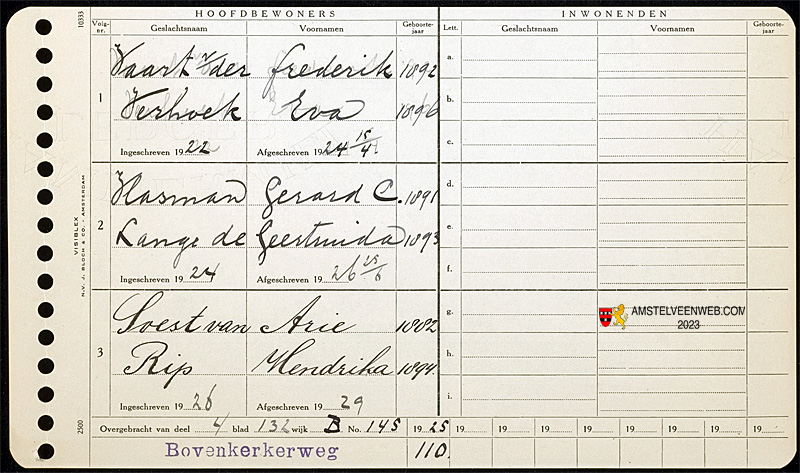 HOOFDBEWONERS INWONENDEN
Volg-nr. Geslachtsnaam Voornamen Geboorte-jaar Lett. Geslachtsnaam Voornamen Geboorte-jaar
10333
1
Vaart v/der Frederik 1892 a.
Verhoek Eva 1896 b.
Ingeschreven 1922 Afgeschreven 1924 15/4. c.
2
Hasman Gerard C. 1891 d.
Lange de Geertruida 1893 e.
Ingeschreven 1924 Afgeschreven 1926 25/6 f.
3
Soest van Arie 1882 g.
Rip Hendrika 1894 h.
Ingeschreven 1926 Afgeschreven 1929 i.
VISIBLEX
N.V. J. BLOCH & CO. - AMSTERDAM
2500
AMSTELVEENWEB.COM
2023
Overgebracht van deel 4 blad 132 wijk B No. 145 1925 19 19 19 19 19 19 19 19
Bovenkerkerweg 110.